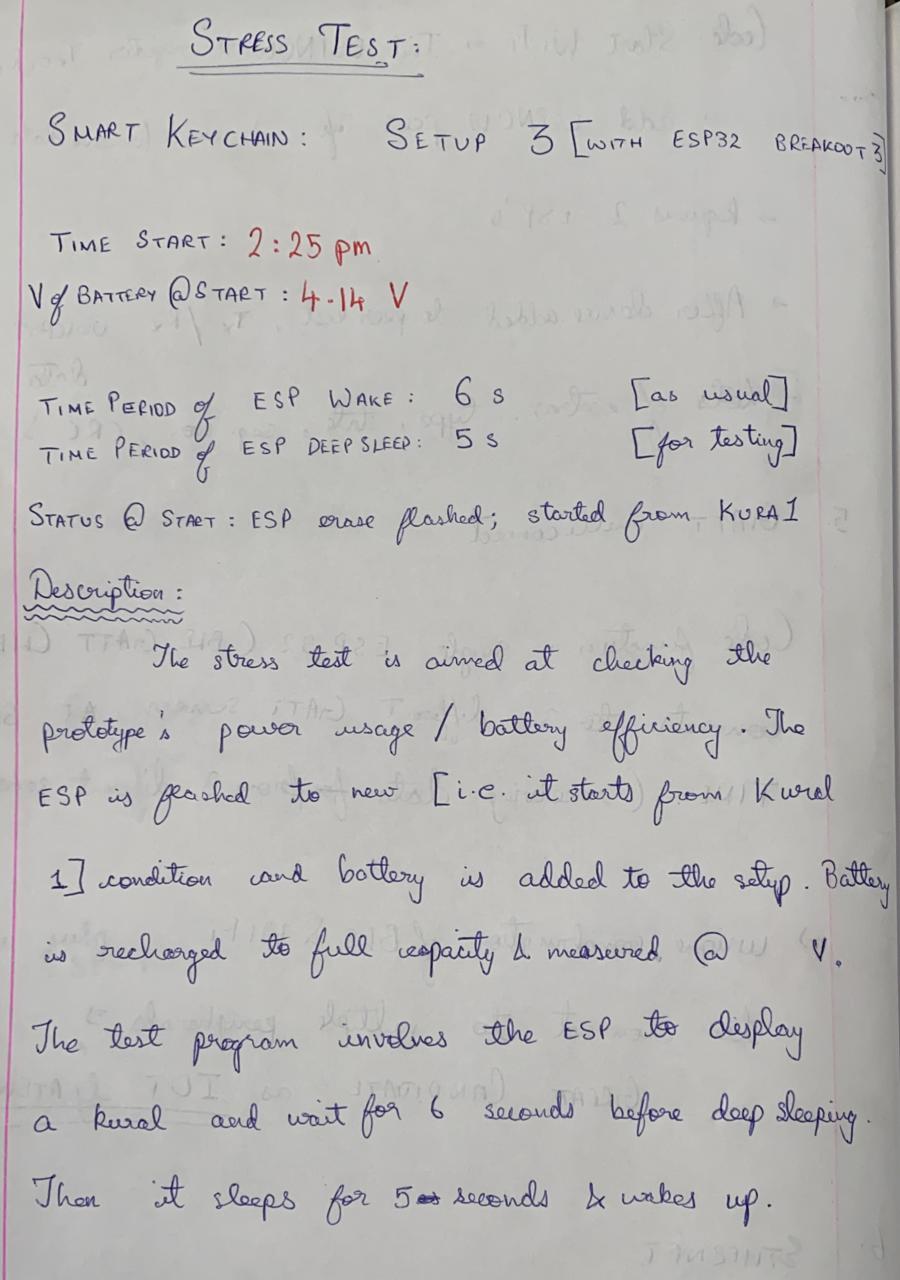 STRESS TEST:
SMART KEYCHAIN: SETUP 3 [WITH ESP32 BREAKOUT3]
TIME START: 2:25 pm
V of BATTERY @ START: 4.14 V
TIME PERIOD of ESP WAKE: 6 s [as usual]
TIME PERIOD of ESP DEEP SLEEP: 5 s [for testing]
STATUS @ START: ESP erase flashed; started from KURAL
Description:
The stress test is aimed at checking the
prototype's power usage / battery efficiency. The
ESP is flashed to new [i.e. it starts from Kural
1] condition and battery is added to the setup. Battery
is recharged to full capacity & measured @ V.
The test program involves the ESP to display
a kural and wait for 6 seconds before deep sleeping.
Then it sleeps for 5 seconds & wakes up.